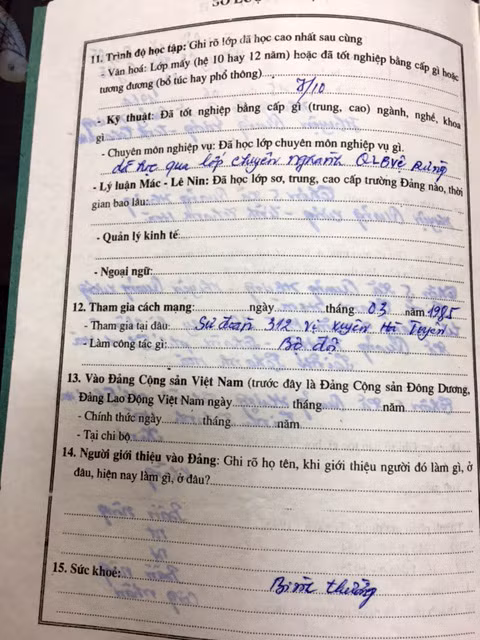 11. Trình độ học tập: Ghi rõ lớp đã học cao nhất sau cùng
- Văn hoá: Lớp mấy (hệ 10 hay 12 năm) hoặc đã tốt nghiệp bằng cấp gì hoặc
tương đương (bổ túc hay phổ thông) 7/10
- Kỹ thuật: Đã tốt nghiệp bằng cấp gì (trung, cao) ngành, nghề, khoa
gì
- Chuyên môn nghiệp vụ: Đã học lớp chuyên môn nghiệp vụ gì.
đã học qua lớp chuyên nghành QLBVệ Rừng
- Lý luận Mác - Lê Nin: Đã học lớp sơ, trung, cao cấp trường Đảng nào, thời
gian bao lâu:
- Quản lý kinh tế:
- Ngoại ngữ:
12. Tham gia cách mạng: ngày tháng 03 năm 1985
- Tham gia tại đâu Sư đoàn 312 Vị Xuyên Hà Tuyên
- Làm công tác gì: Bộ đội
13. Vào Đảng Cộng sản Việt Nam (trước đây là Đảng Cộng sản Đông Dương,
Đảng Lao Động Việt Nam ngày tháng năm
- Chính thức ngày tháng năm
- Tại chi bộ
14. Người giới thiệu vào Đảng: Ghi rõ họ tên, khi giới thiệu người đó làm gì, ở
đâu, hiện nay làm gì, ở đâu?
15. Sức khoẻ: Bình thường